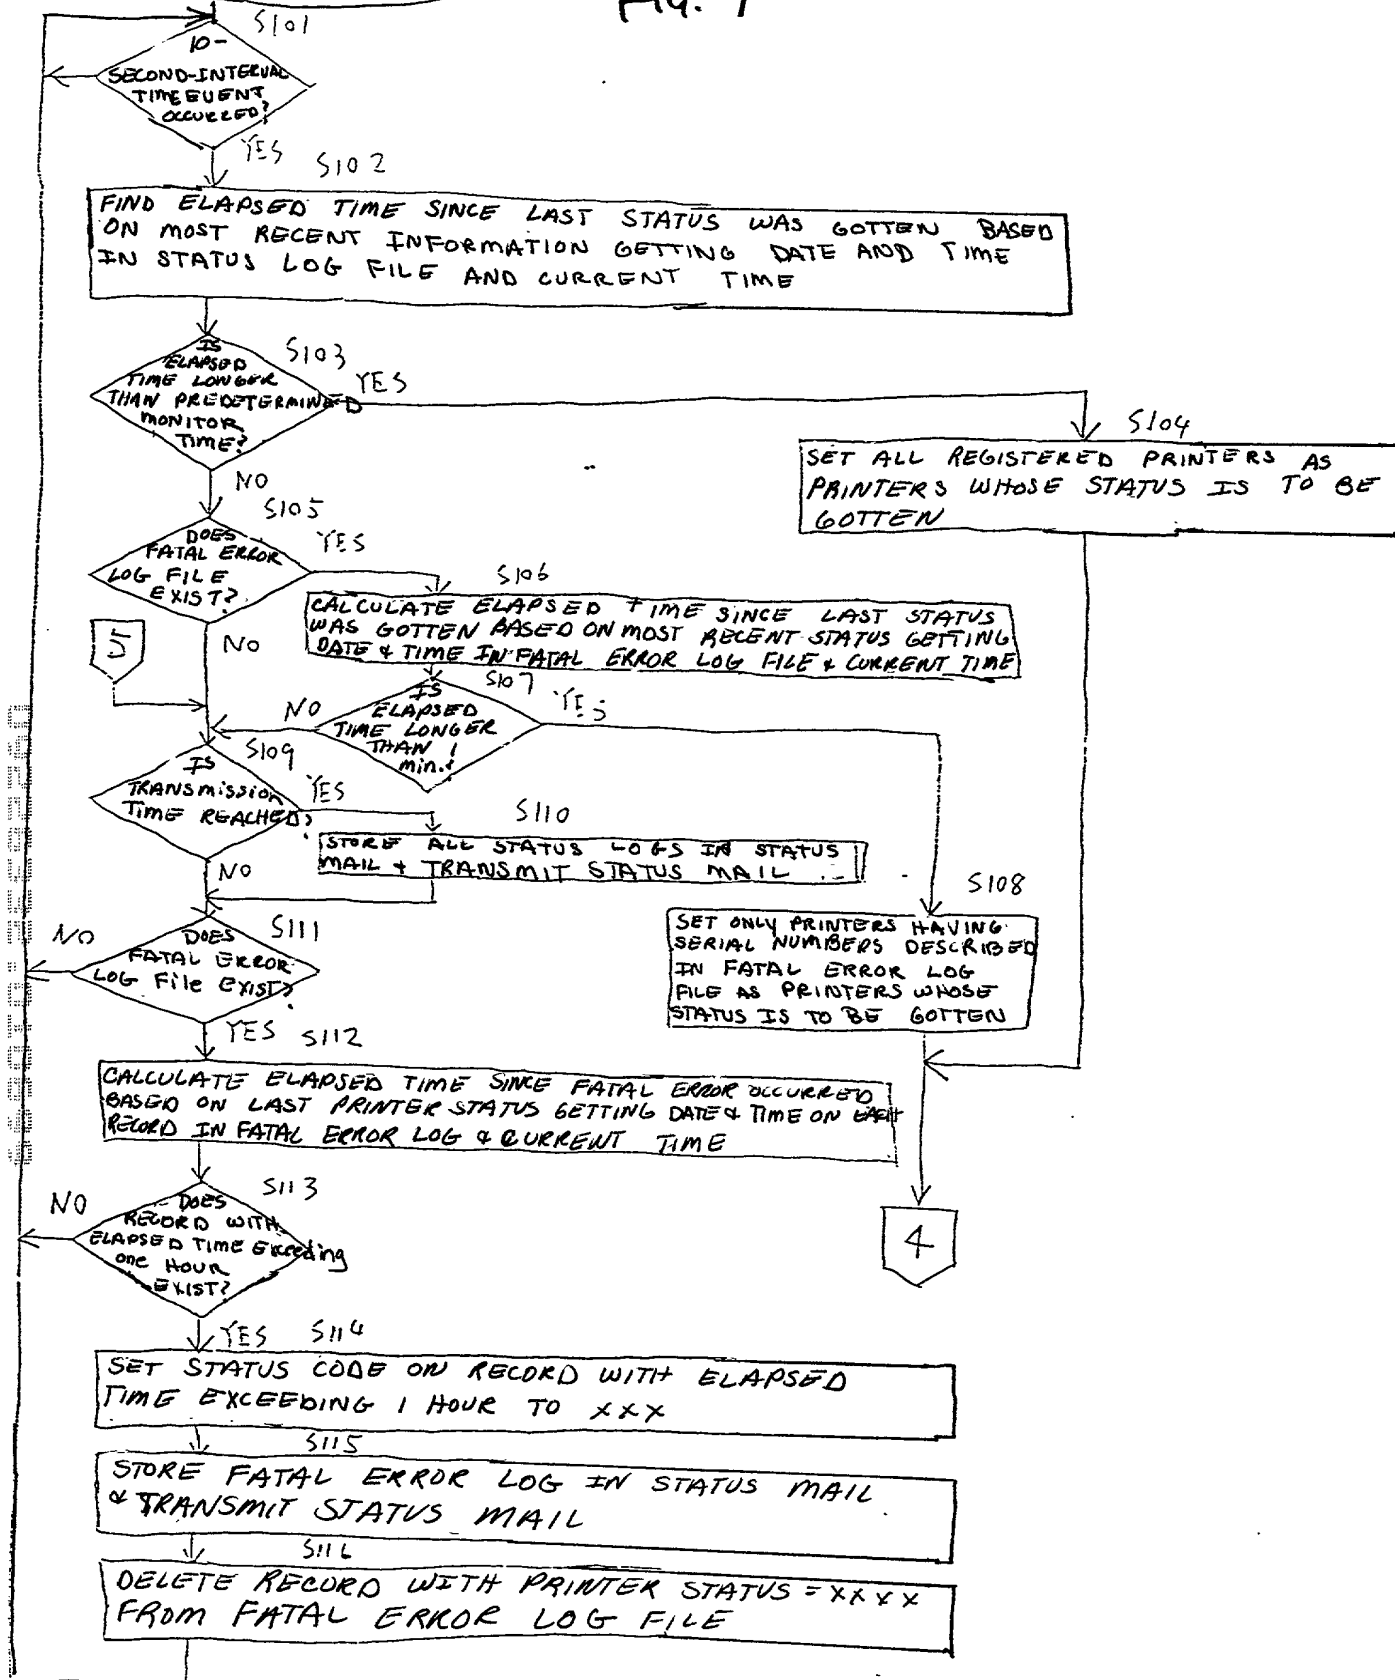 S101
10-
SECOND-INTERVAL
TIME EVENT
OCCURRED?
YES
S102
FIND ELAPSED TIME SINCE LAST STATUS WAS GOTTEN BASED
ON MOST RECENT INFORMATION GETTING DATE AND TIME
IN STATUS LOG FILE AND CURRENT TIME
S103
IS
ELAPSED
TIME LONGER
THAN PREDETERMINED
MONITOR
TIME?
YES
NO
S104
SET ALL REGISTERED PRINTERS AS
PRINTERS WHOSE STATUS IS TO BE
GOTTEN
S105
DOES
FATAL ERROR
LOG FILE
EXIST?
YES
NO
S106
CALCULATE ELAPSED TIME SINCE LAST STATUS
WAS GOTTEN BASED ON MOST RECENT STATUS GETTING
DATE & TIME IN FATAL ERROR LOG FILE & CURRENT TIME
5
S107
IS
ELAPSED
TIME LONGER
THAN 1
min.?
NO
YES
S109
IS
TRANSMISSION
TIME REACHED?
YES
NO
S110
STORE ALL STATUS LOGS IN STATUS
MAIL & TRANSMIT STATUS MAIL
S108
SET ONLY PRINTERS HAVING
SERIAL NUMBERS DESCRIBED
IN FATAL ERROR LOG
FILE AS PRINTERS WHOSE
STATUS IS TO BE GOTTEN
S111
DOES
FATAL ERROR
LOG File EXIST?
NO
YES
S112
CALCULATE ELAPSED TIME SINCE FATAL ERROR OCCURRED
BASED ON LAST PRINTER STATUS GETTING DATE & TIME ON EACH
RECORD IN FATAL ERROR LOG & CURRENT TIME
S113
DOES
RECORD WITH
ELAPSED TIME Exceeding
one HOUR
EXIST?
NO
YES
4
S114
SET STATUS CODE ON RECORD WITH ELAPSED
TIME EXCEEDING 1 HOUR TO XXX
S115
STORE FATAL ERROR LOG IN STATUS MAIL
& TRANSMIT STATUS MAIL
S116
DELETE RECORD WITH PRINTER STATUS = XXXX
FROM FATAL ERROR LOG FILE